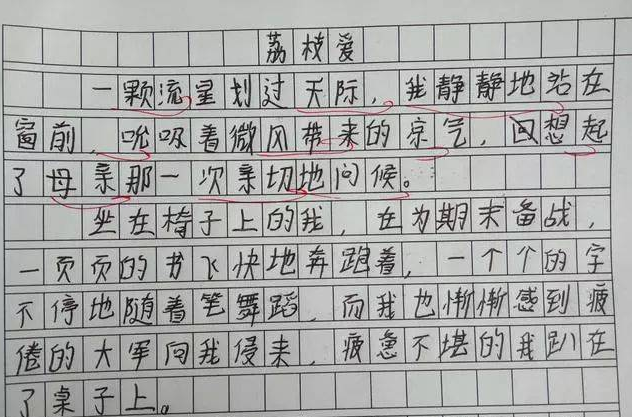 荔枝爱
一颗流星划过天际，我静静地站在
窗前，吮吸着微风带来的凉气，回想起
了母亲那一次亲切地问候。
坐在椅子上的我，在为期末备战，
一页页的书飞快地奔跑着，一个个的字
不停地随着笔舞蹈，而我也惭惭感到疲
倦的大军向我侵来，疲惫不堪的我趴在
了桌子上。